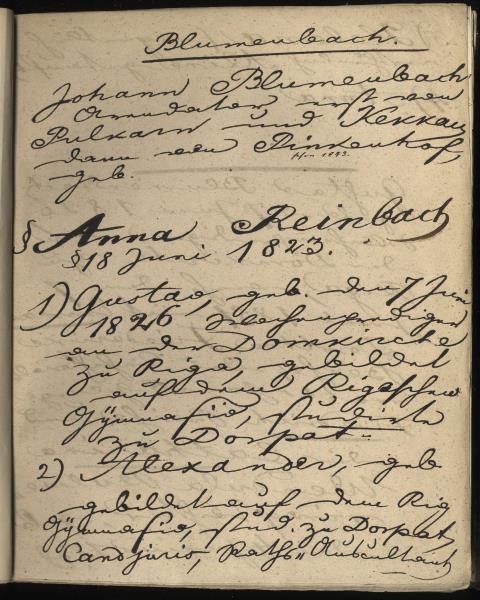 Blumenbach.
Johann Blumenbach
Arrendator erst von
Pulkarn und Kekkau,
dann von Pinkenhof,
geb.
§ Anna Reinbach
§ 18 Juni 1823.
1) Gustav, geb. den 7 Juni
1826 Wochenprediger
an der Domkirche
zu Riga, gebildet
auf dem Rigaschen
Gymnasio, studirte
zu Dorpat.
2) Alexander, geb
gebildet auf dem Rig
Gymnasio, stud. zu Dorpat,
Cand juris, Raths Auscultant